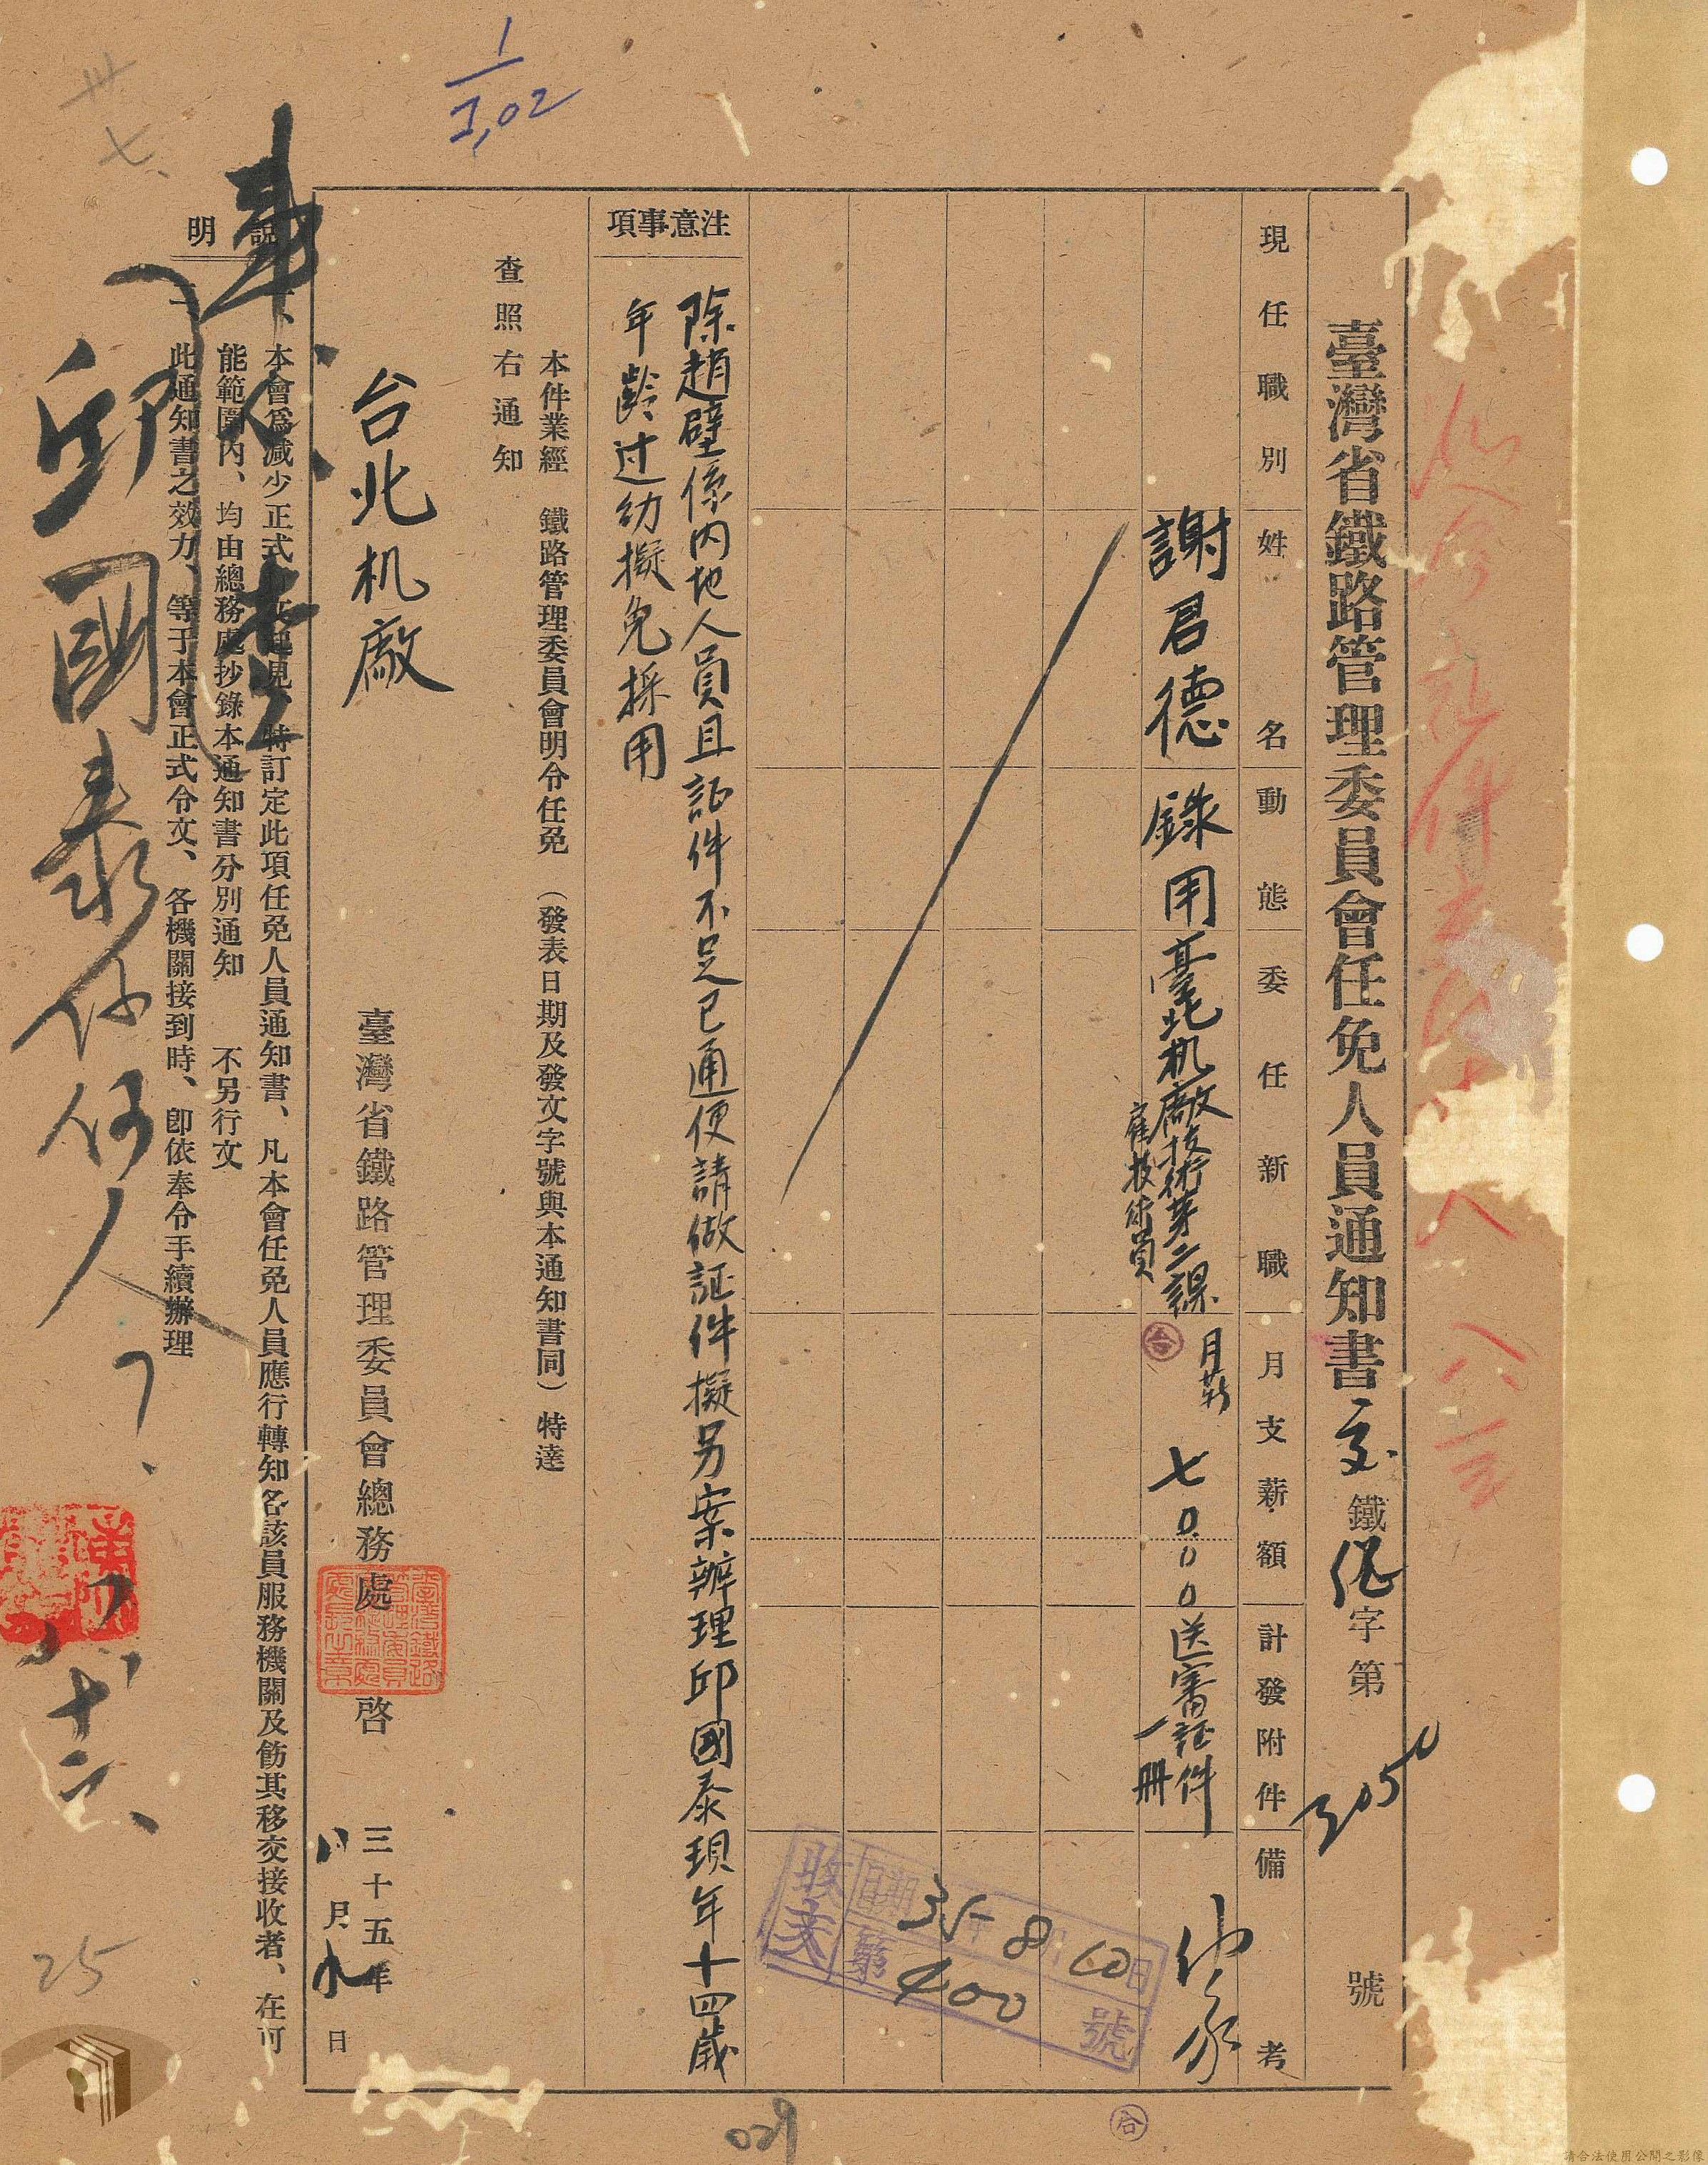 臺灣省鐵路管理委員會任免人員通知書 交鐵人字第3050號
現任職別
姓名
動態
委任新職
月支薪額
計發附件
備考
謝君德
錄用
臺北机廠技術第二課
雇技術員
月薪
七0.00
送審証件
一冊
注意事項
除趙壁係內地人員且証件不足已通便請做証件擬另案辦理邱國泰現年十四歲
年齡过幼擬免採用
本件業經 鐵路管理委員會明令任免 (發表日期及發文字號與本通知書同) 特達
查照右通知
台北机廠
臺灣省鐵路管理委員會總務處 啓
三十五年
八月九日
說明
一、本會爲減少正式 起見、特訂定此項任免人員通知書、凡本會任免人員應行轉知各該員服務機關及飭其移交接收者、在可
能範圍內、均由總務處抄錄本通知書分別通知 不另行文
二、此通知書之效力、等于本會正式令文、各機關接到時、卽依奉令手續辦理
邱國泰係何人?
八、十二、
收文
日期 35年8月10日
第400號
25
029
卅七
1
請合法使用公開之影像